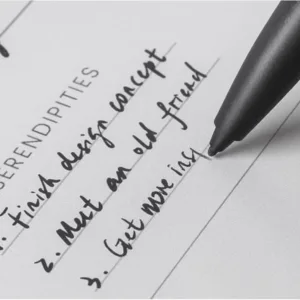 SERENDIPITIES
1. Finish design concept
2. Meet an old friend
3. Get more ins